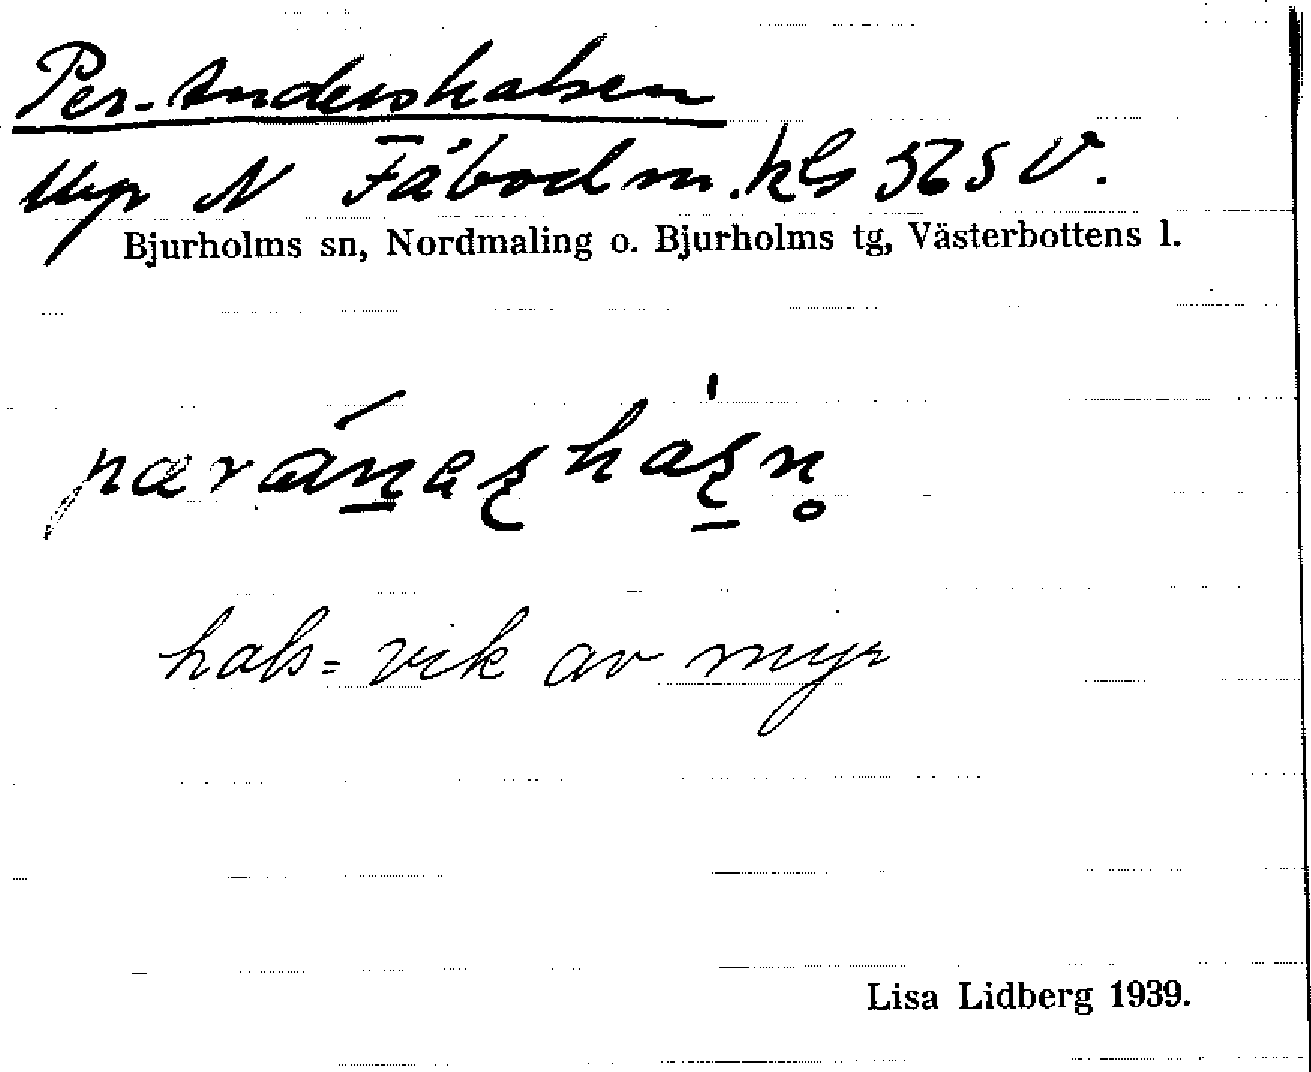 Per-Andershalsen
Myr N Fäbodm. kbl 565 V.
Bjurholms sn, Nordmaling o. Bjurholms tg, Västerbottens l.
hals = vik av myr
Lisa Lidberg 1939.